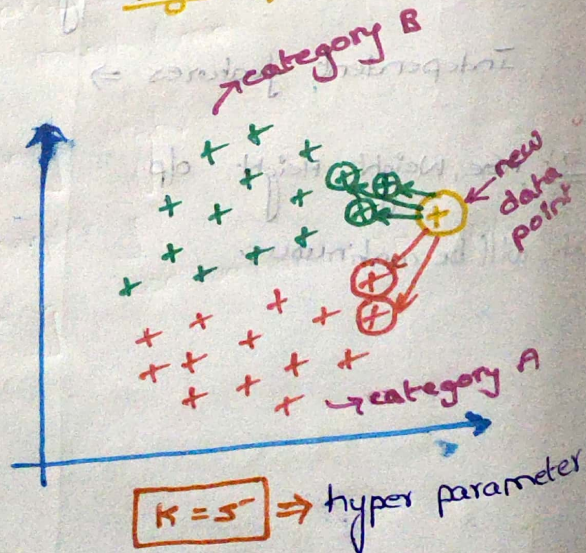 category B
new
data
point
category A
K = 5 ⇒ hyper parameter